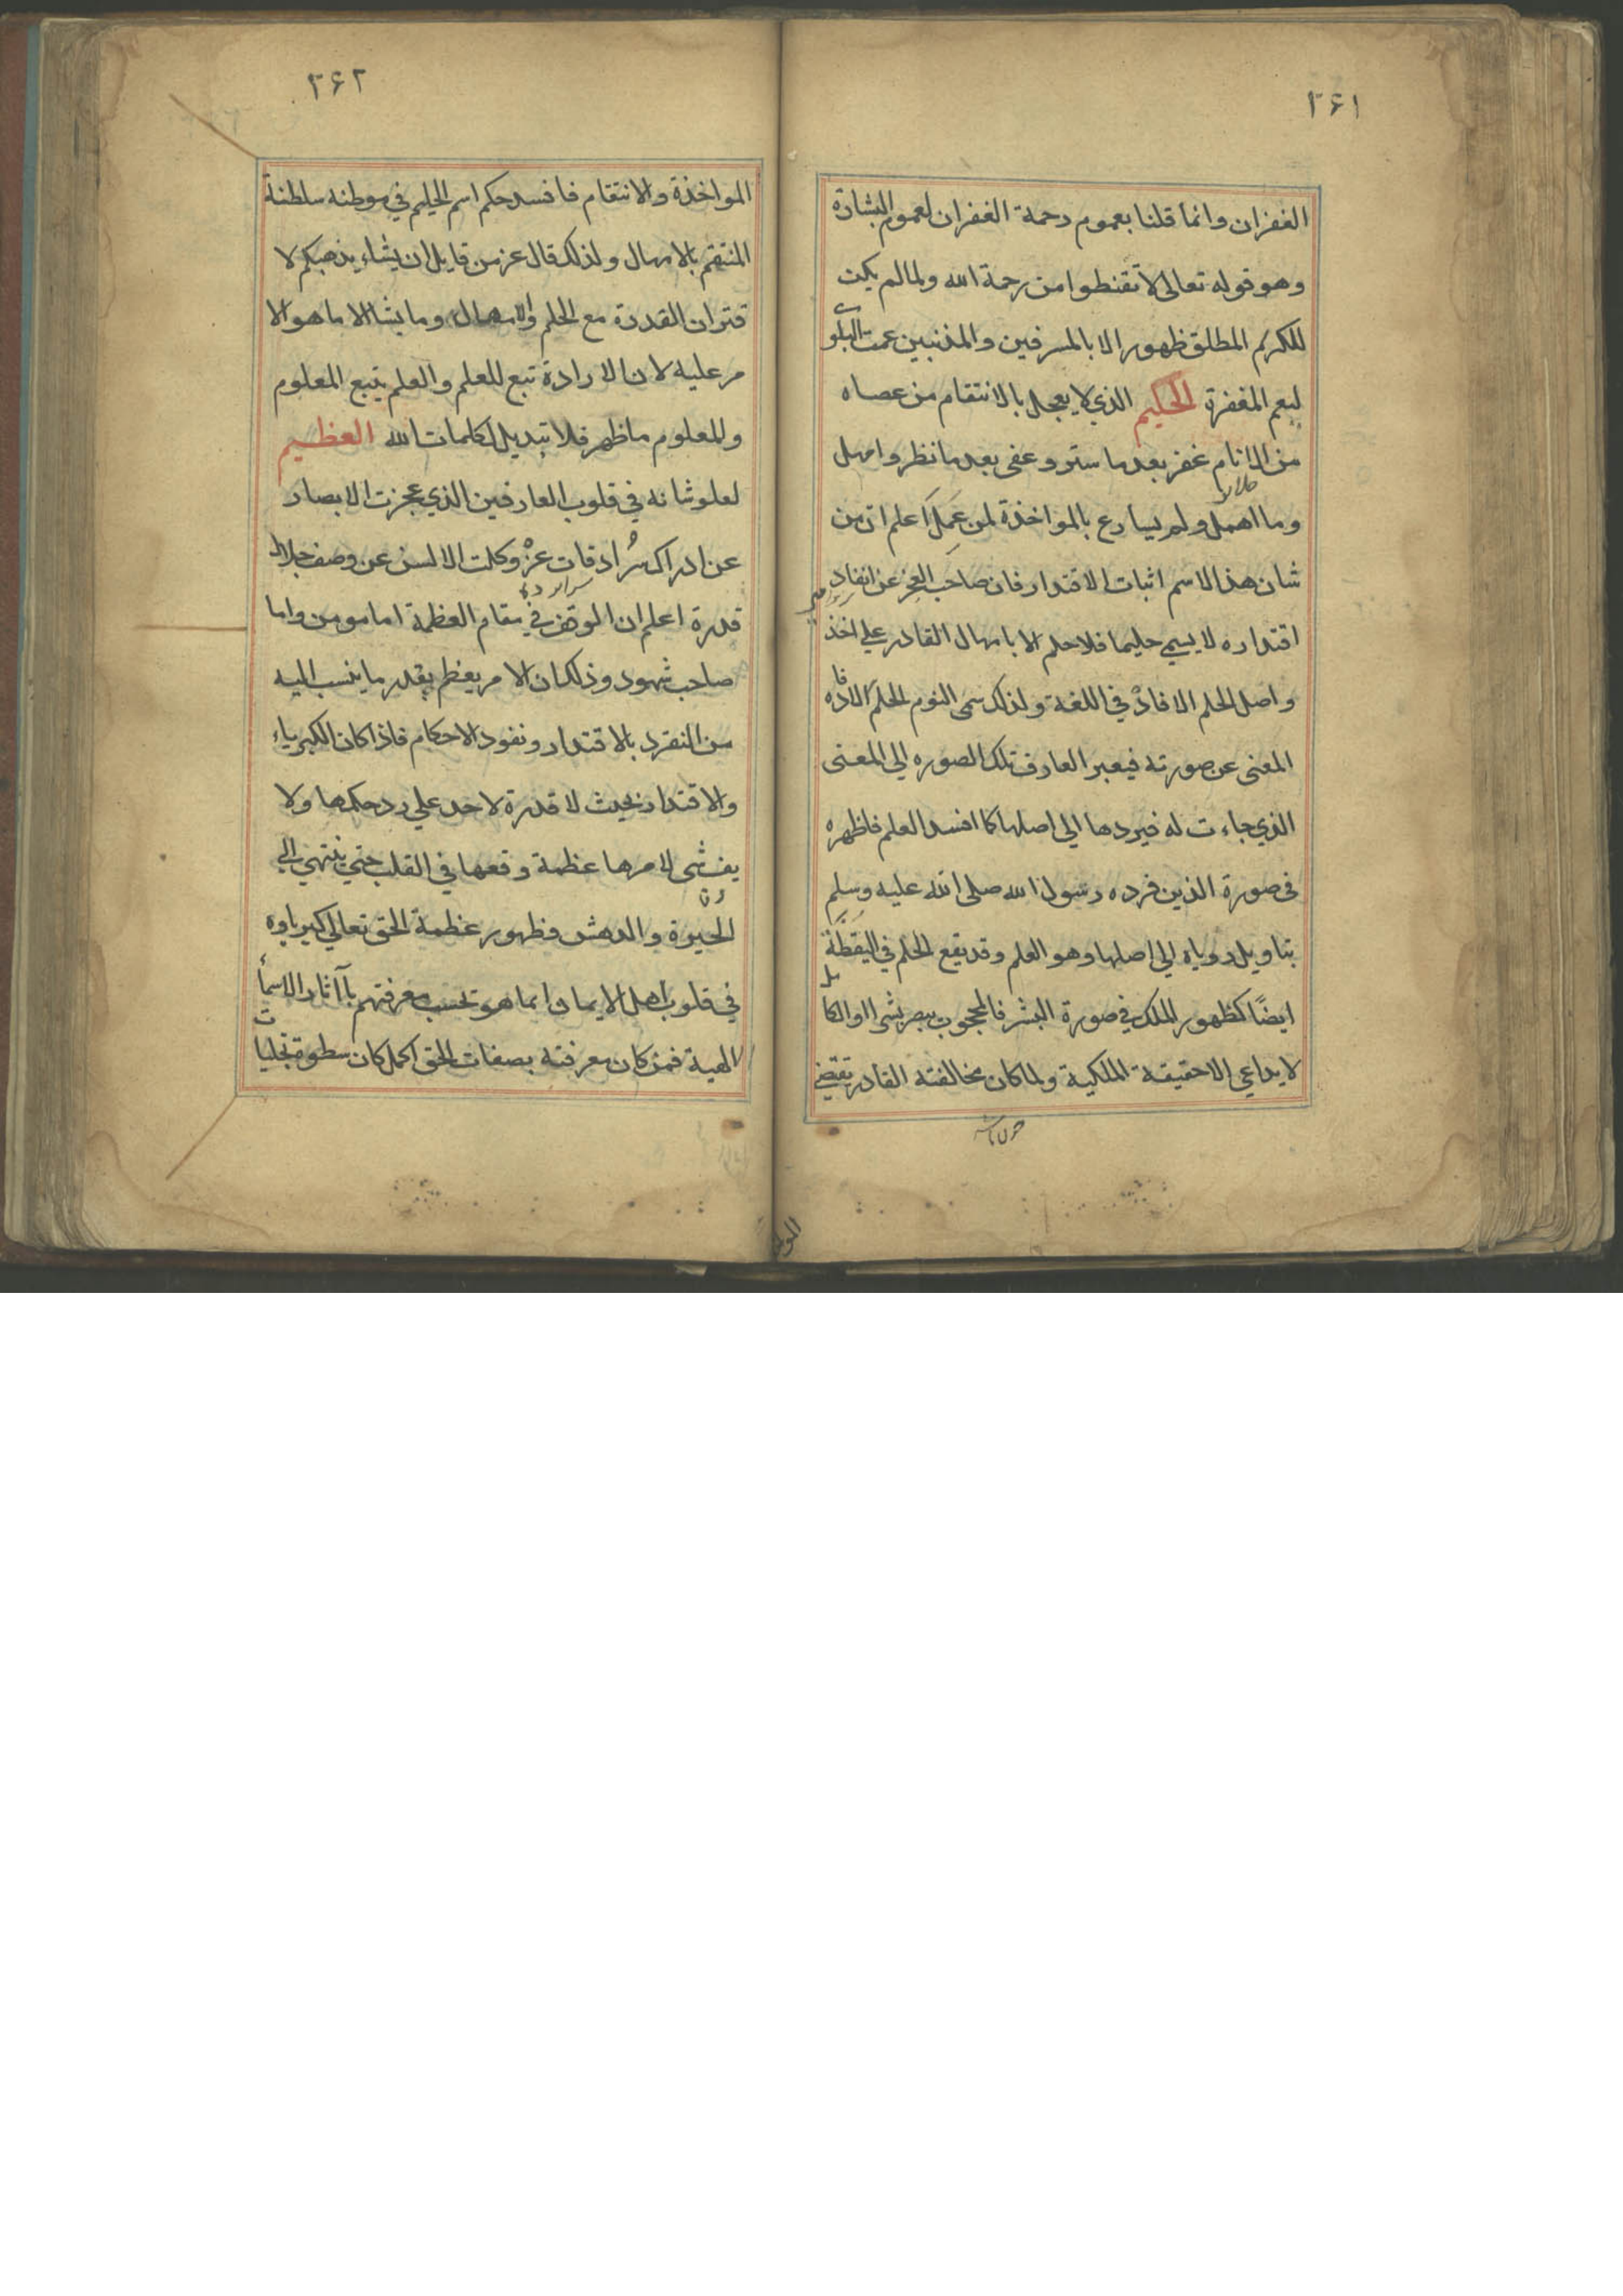 ٢٦١
الغفران وانما قلنا بعموم رحمة الغفران لعموم البشارة
وهو قوله تعالى لا تقنطوا من رحمة الله ولما لم يكن
للكريم المطلق ظهور الا بالمسرفين والمذنبين عمت البلوى
ليعم المغفرة الحكيم الذي لا يعجل بالانتقام من عصاه
من الانام غفر بعد ما ستر وعفى بعد ما نظر وامهل
وما اهمل ولم يسارع بالمواخذة لمن عمل اعلم ان من
شان هذا الاسم اثبات الاقتدار فان صاحب العجز عن انفاد
اقتداره لا يسمي حليما فلا حلم الا بامهال القادر علي اخذ
واصل الحلم الافاد في اللغة ولذلك سمى النوم الحلم
المعنى عن صورته فيعبر العارف تلك الصوره الي المعنى
الذي جاءت له فيردها الي اصلها كما افسد العلم فاظهره
في صورة الذين فرده رسول الله صلى الله عليه وسلم
بتاويل روياه الي اصلها وهو العلم وقد يقع الحلم في اليقظة
ايضًا كظهور الملك في صورة البشر فالمحجوب يبصر بشرا والكامل
لا يداعي الا حقيقة الملكية ولما كان مخالفته القادر تقتضي
٢٦٢
المواخذة والانتقام فافسد حكم اسم الحليم في موطنه سلطنة
المنتقم بالامهال ولذلك قال عز من قايل ان يشاء يذهبكم لا
قتران القدرة مع الحلم والامهال وما يشا الا ما هو الا
مر عليه لان الارادة تبع للعلم والعلم يتبع المعلوم
والمعلوم ما ظهر فلا تبديل لكلمات الله العظيم
لعلو شانه في قلوب العارفين الذي عجزت الابصار
عن ادراك سرادقات عزه وكلت الالسن عن وصف جلال
قدرة اعلم ان الموقف في مقام العظمة اما مومن واما
صاحب شهود وذلك ان الامر يعظم بقدر ما ينسب اليه
من التفرد بالاقتدار ونفود الاحكام فاذا كان الكبرياء
والاقتدار بحيث لا قدرة لاحد علي رد حكمها ولا
يف شى لامرها عظمة وقعها في القلب حتي ينتهي الي
الحيرة والدهش فظهور عظمة الحق تعالي كبرياوه
في قلوب اهل الايمان انما هو بحسب معرفتهم بآثار الاسمأ
الهية فمن كان معرفته بصفات الحق اكمل كان سطوة تجليات